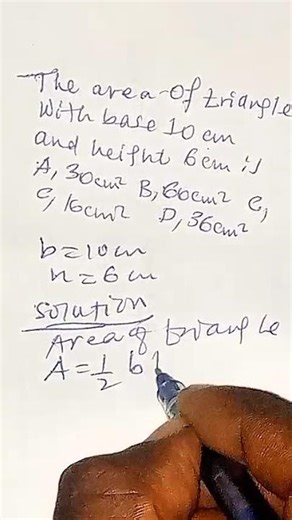 The area of triangle
with base 10 cm
and height 6 cm is
A, 30cm² B, 60cm² C,
C, 16cm² D, 36cm²
b = 10 cm
h = 6 cm
solution
Area of triangle
A = 1/2 b